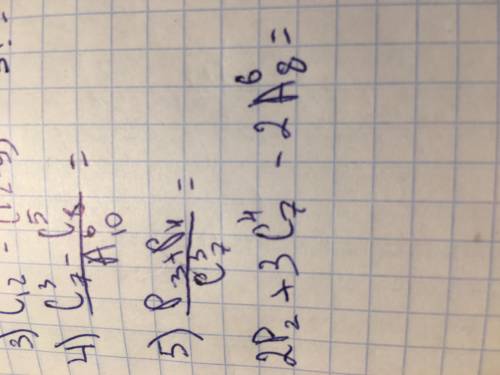 3) C₁₂
4) (C₇³ - C₈⁵) / A₁₀⁶ =
5) (P₃ + P₄) / C₇³ =
2P₂ + 3C₇⁴ - 2A₈⁶ =